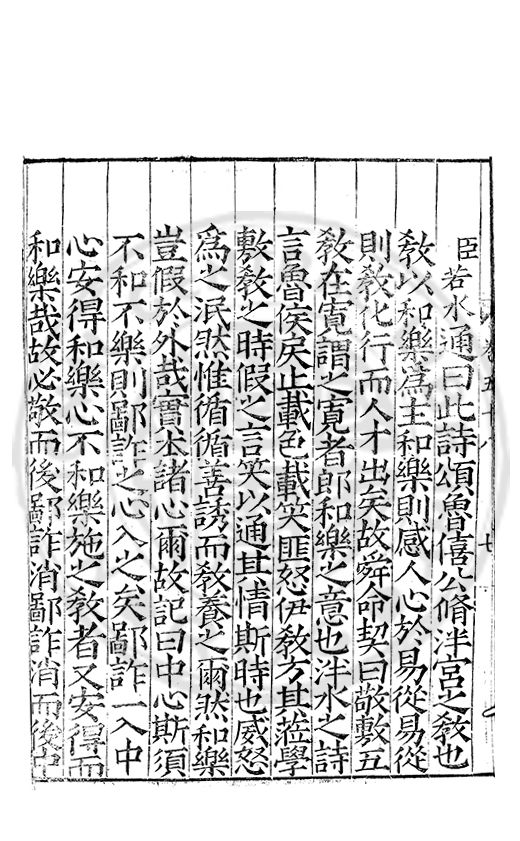 臣若水通曰此詩頌魯僖公脩泮宮之敎也
敎以和樂爲主和樂則感人心於易從易從
則敎化行而人才出矣故舜命契曰敬敷五
敎在寬謂之寬者郎和樂之意也泮水之詩
言魯侯戾止載色載笑匪怒伊敎方其蒞學
敷敎之時假之言笑以通其情斯時也威怒
爲之泯然惟循循善誘而敎養之爾然和樂
豈假於外哉實本諸心爾故記曰中心斯須
不和不樂則鄙詐之心入之矣鄙詐一入中
心安得和樂心不和樂施之敎者又安得而
和樂哉故必敬而後鄙詐消鄙詐消而後中